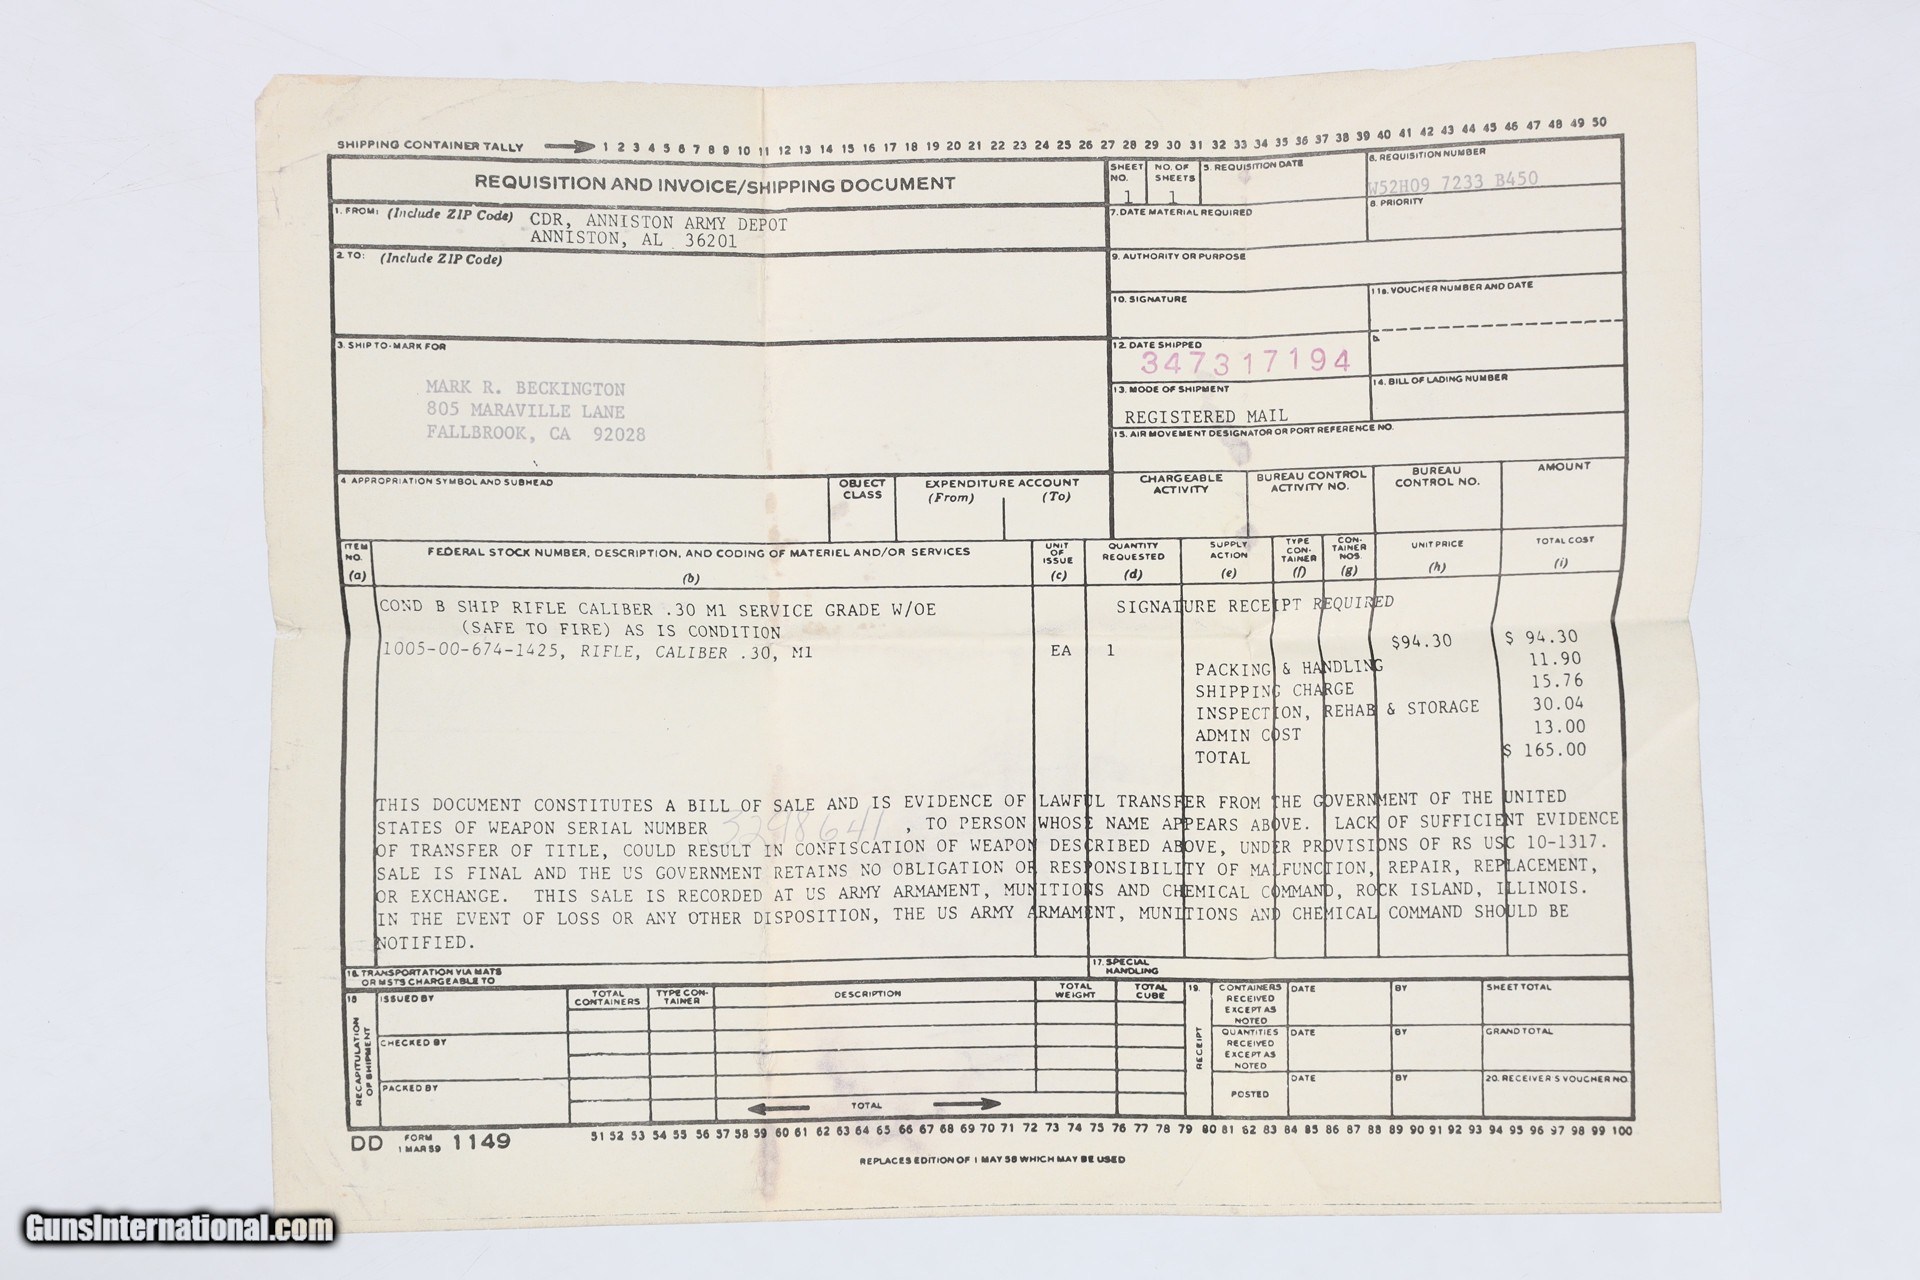 SHIPPING CONTAINER TALLY 1 2 3 4 5 6 7 8 9 10 11 12 13 14 15 16 17 18 19 20 21 22 23 24 25 26 27 28 29 30 31 32 33 34 35 36 37 38 39 40 41 42 43 44 45 46 47 48 49 50
REQUISITION AND INVOICE/SHIPPING DOCUMENT
SHEET NO.
1
NO. OF SHEETS
1
5. REQUISITION DATE
6. REQUISITION NUMBER
W52H09 7233 B450
1. FROM: (Include ZIP Code) CDR, ANNISTON ARMY DEPOT
ANNISTON, AL 36201
7. DATE MATERIAL REQUIRED
8. PRIORITY
2. TO: (Include ZIP Code)
9. AUTHORITY OR PURPOSE
10. SIGNATURE
11a. VOUCHER NUMBER AND DATE
b.
3. SHIP TO - MARK FOR
MARK R. BECKINGTON
805 MARAVILLE LANE
FALLBROOK, CA 92028
12. DATE SHIPPED
347317194
13. MODE OF SHIPMENT
REGISTERED MAIL
14. BILL OF LADING NUMBER
15. AIR MOVEMENT DESIGNATOR OR PORT REFERENCE NO.
4. APPROPRIATION SYMBOL AND SUBHEAD
OBJECT CLASS
EXPENDITURE ACCOUNT
(From) (To)
CHARGEABLE ACTIVITY
BUREAU CONTROL ACTIVITY NO.
BUREAU CONTROL NO.
AMOUNT
ITEM NO.
(a)
FEDERAL STOCK NUMBER, DESCRIPTION, AND CODING OF MATERIEL AND/OR SERVICES
(b)
UNIT OF ISSUE
(c)
QUANTITY REQUESTED
(d)
SUPPLY ACTION
(e)
TYPE CON-TAINER
(f)
CON-TAINER NOS.
(g)
UNIT PRICE
(h)
TOTAL COST
(i)
COND B SHIP RIFLE CALIBER .30 M1 SERVICE GRADE W/OE SIGNATURE RECEIPT REQUIRED
(SAFE TO FIRE) AS IS CONDITION
1005-00-674-1425, RIFLE, CALIBER .30, M1 EA 1 $94.30 $ 94.30
PACKING & HANDLING 11.90
SHIPPING CHARGE 15.76
INSPECTION, REHAB & STORAGE 30.04
ADMIN COST 13.00
TOTAL $ 165.00
THIS DOCUMENT CONSTITUTES A BILL OF SALE AND IS EVIDENCE OF LAWFUL TRANSFER FROM THE GOVERNMENT OF THE UNITED
STATES OF WEAPON SERIAL NUMBER 3298641, TO PERSON WHOSE NAME APPEARS ABOVE. LACK OF SUFFICIENT EVIDENCE
OF TRANSFER OF TITLE, COULD RESULT IN CONFISCATION OF WEAPON DESCRIBED ABOVE, UNDER PROVISIONS OF RS USC 10-1317.
SALE IS FINAL AND THE US GOVERNMENT RETAINS NO OBLIGATION OR RESPONSIBILITY OF MALFUNCTION, REPAIR, REPLACEMENT,
OR EXCHANGE. THIS SALE IS RECORDED AT US ARMY ARMAMENT, MUNITIONS AND CHEMICAL COMMAND, ROCK ISLAND, ILLINOIS.
IN THE EVENT OF LOSS OR ANY OTHER DISPOSITION, THE US ARMY ARMAMENT, MUNITIONS AND CHEMICAL COMMAND SHOULD BE
NOTIFIED.
16. TRANSPORTATION VIA MATS
OR MSTS CHARGEABLE TO
17. SPECIAL HANDLING
18
RECAPITULATION OF SHIPMENT
ISSUED BY
CHECKED BY
PACKED BY
TOTAL CONTAINERS
TYPE CON-TAINER
DESCRIPTION
TOTAL WEIGHT
TOTAL CUBE
TOTAL
19.
RECEIPT
CONTAINERS RECEIVED EXCEPT AS NOTED
DATE
BY
SHEET TOTAL
QUANTITIES RECEIVED EXCEPT AS NOTED
DATE
BY
GRAND TOTAL
POSTED
DATE
BY
20. RECEIVER'S VOUCHER NO.
DD FORM 1 MAR 59 1149
51 52 53 54 55 56 57 58 59 60 61 62 63 64 65 66 67 68 69 70 71 72 73 74 75 76 77 78 79 80 81 82 83 84 85 86 87 88 89 90 91 92 93 94 95 96 97 98 99 100
REPLACES EDITION OF 1 MAY 58 WHICH MAY BE USED
GunsInternational.com